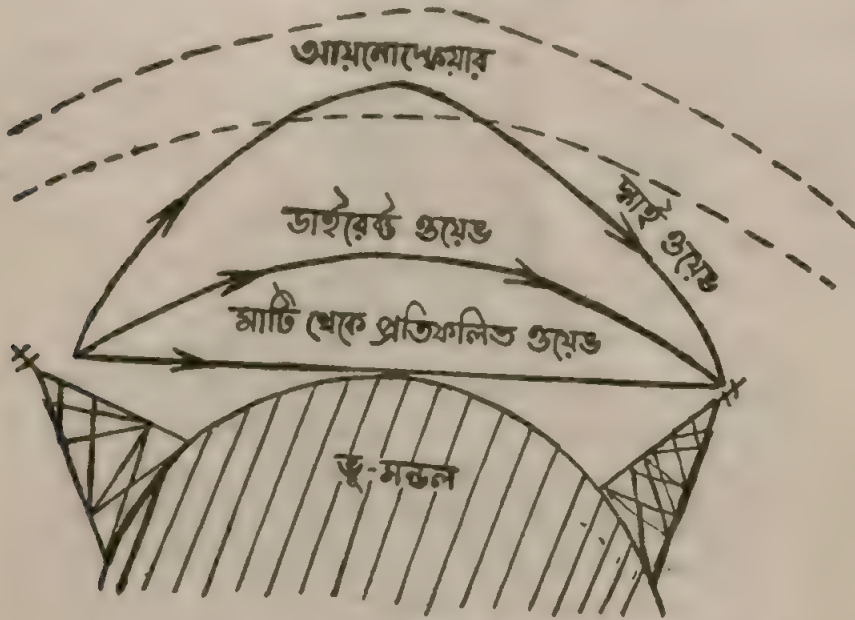 আয়নোস্ফেয়ার
স্কাই ওয়েভ
ডাইরেক্ট ওয়েভ
মাটি থেকে প্রতিফলিত ওয়েভ
ভূ-মন্ডল